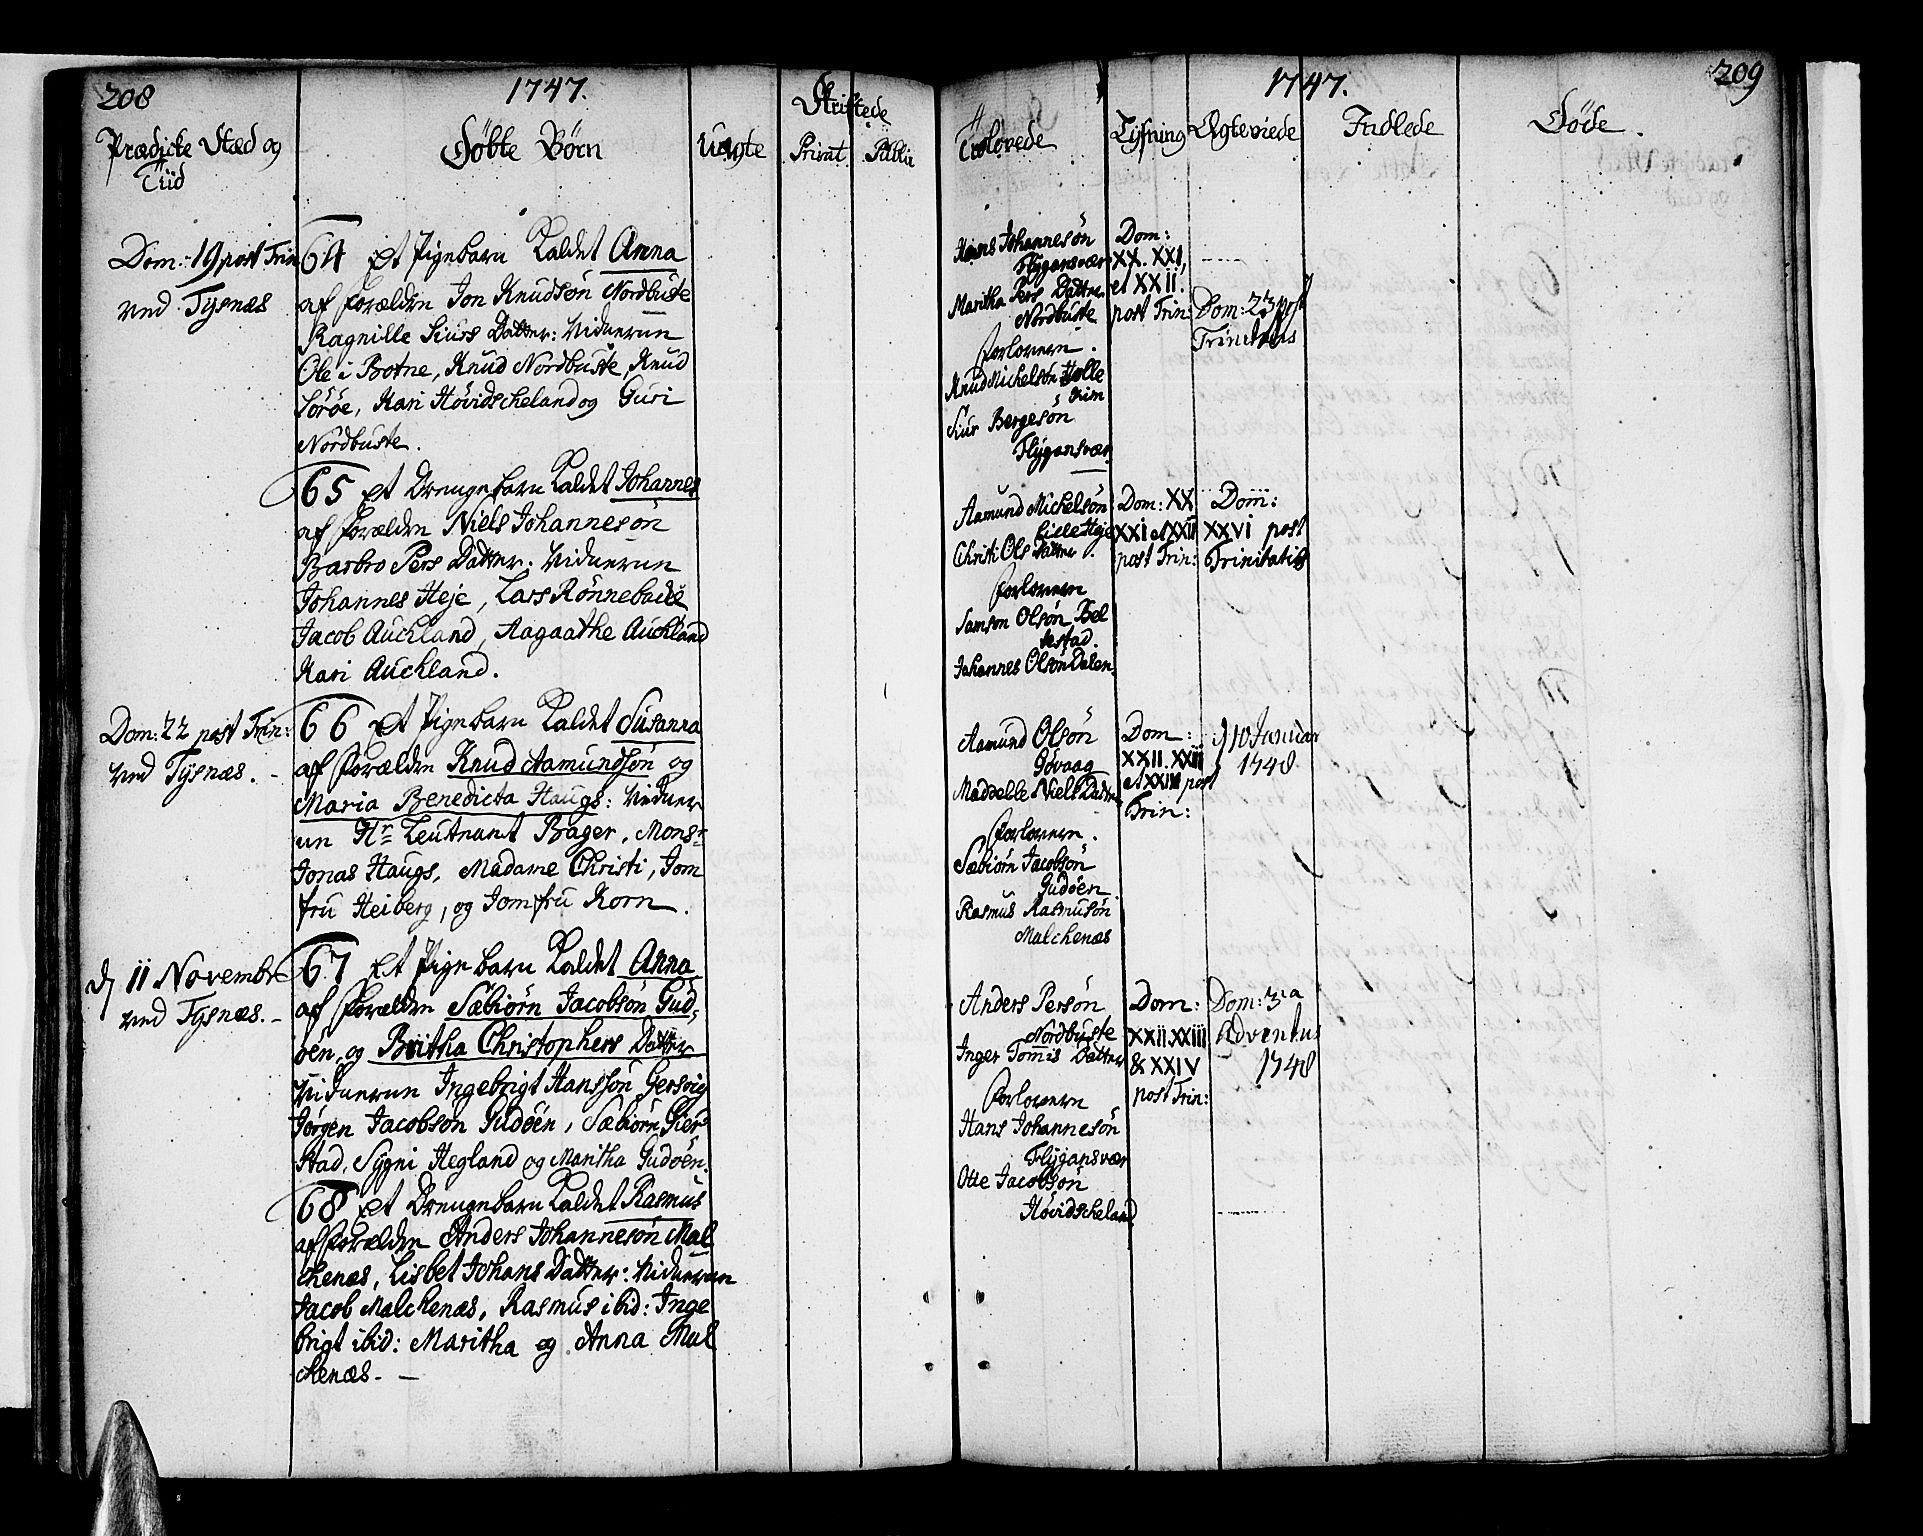 208
1747.
Prædicke Stæd og
Tiid
Döbte Börn
Uægte
Skriftede
Privat
Public
Dom: 19 post Trin
ved Tysnæs
64 Et Pigebarn Kaldet Anna
af Forældre Jon Knudsøn Nordbuste
Ragnille Siurs Datter: Vidnerne
Ole i Botne, Knud Nordbuste, Knud
Sörøe, Kari Høvidscheland og Guri
Nordbuste.
65 Et Drengebarn Kaldet Johannes
af Forældre Niels Johannesøn
Barbro Pers Datter. Vidnerne
Johannes Heje, Lars Rönnebade
Jacob Auckland, Aagaathe Auckland
Kari Auckland.
Dom: 22 post Trin:
ved Tysnæs. -
66 Et Pigebarn Kaldet Susanna
af Forældre Knud Aamundsøn og
Maria Benedicta Haugs: Vidner
ne Hr Leutnant Bager, Monsr
Jonas Haugs, Madame Christi, Jom
fru Heiberg, og Jomfru Korn.
d 11 Novembr
ved Tysnæs. -
67 Et Pigebarn Kaldet Anna
af Forældre Sæbiørn Jacobsøn Gud,
øen, og Britha Christophers Datter
Vidnerne Ingebrigt Hanssøn Gersvig
Jørgen Jacobsøn Gudøen, Sæbiørn Gier
stad, Sygni Hegland og Maritha Gudøen.
68 Et Drengebarn Kaldet Rasmus
af Forældre Anders Johannesøn Mal
chenæs, Lisbet Johans Datter: Vidnerne
Jacob Malchenæs, Rasmus ibid: Inge
brigt ibid: Maritha og Anna Mal
chenæs. -
1747.
209
Trolovede
Lysning
Ægteviede
Indlede
Döde.
Hans Johannesøn
Flygansvær
Maritha Pers Datter
Nordbuste
Forlovern.
Knud Michelsøn Holle
kim
Siur Bergesøn
Flygansvær
Dom:
XX. XXI,
et XXII.
post Trin:
Dom: 23 post
Trinitatis
Aamund Michelsøn
Lille Heje
Christi Ols Datter.
Forlovern
Samson Olsøn Bel
lestad.
Johannes Olsøn Dalen.
Dom: XX
XXI et XXII
post Trin:
Dom:
XXVI post
Trinitatis
Aamund Olsøn
Govaag
Maddelle Niels Datter
Forlovern.
Sæbiørn Jacobsøn
Gudøen
Rasmus Rasmusøn
Malchenæs
Dom:
XXII. XXIII
et XXIV post
Trin:
d 10 Januar
1748
Anders Persøn
Nordbuste
Inger Tomis Datter
Forlovern
Hans Johannesøn
Flygansvær
Otte Jacobsøn
Høvidscheland
Dom:
XXII. XXIII
& XXIV
post Trin:
Dom: 3ia
Adventus
1748